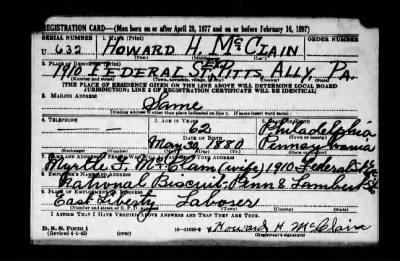 REGISTRATION CARD—(Men born on or after April 28, 1877 and on or before February 16, 1897)
SERIAL NUMBER 1. NAME (Print) ORDER NUMBER
U 632 HOWARD H. McCLAIN
(First) (Middle) (Last)
2. PLACE OF RESIDENCE (Print)
1910 FEDERAL ST. PITTS, ALLY, PA.
(Number and street) (Town, township, village, or city) (County) (State)
[THE PLACE OF RESIDENCE GIVEN ON THE LINE ABOVE WILL DETERMINE LOCAL BOARD
JURISDICTION; LINE 2 OF REGISTRATION CERTIFICATE WILL BE IDENTICAL]
3. MAILING ADDRESS
Same
[Mailing address if other than place indicated on line 2. If same insert word same]
4. TELEPHONE 5. AGE IN YEARS 6. PLACE OF BIRTH
— — 62 Philadelphia
DATE OF BIRTH
May 30, 1880 Pennsylvania
(Exchange) (Number) (Mo.) (Day) (Yr.) (State or country)
7. NAME AND ADDRESS OF PERSON WHO WILL ALWAYS KNOW YOUR ADDRESS
Myrtle McClain (wife) 1910 Federal St
8. EMPLOYER'S NAME AND ADDRESS
National Biscuit, Penn & Lambert St
9. PLACE OF EMPLOYMENT OR BUSINESS
East Liberty Laborer
(Number and street or R. F. D. number) (Town) (County) (State)
I AFFIRM THAT I HAVE VERIFIED ABOVE ANSWERS AND THAT THEY ARE TRUE.
D. S. S. Form 1
(Revised 4-1-42) (over) Howard H McClain
(Registrant's signature)